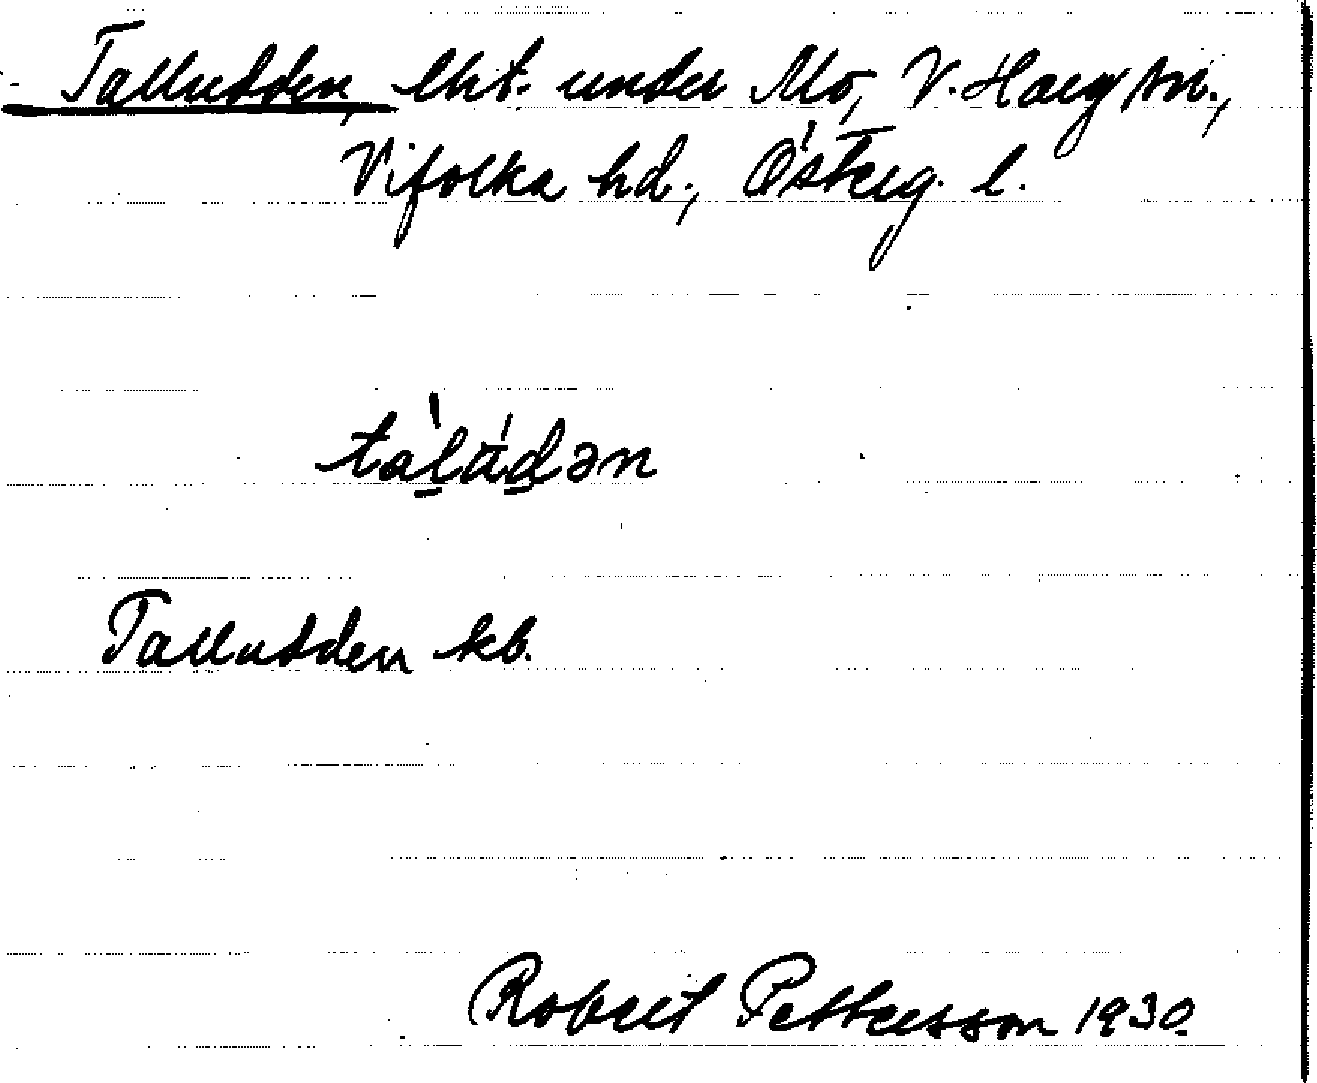 Talludden, lht. under Mo, V. Harg sn.,
Vifolka hd., Österg. l.
tàlúdən
Talludden kb.
Robert Pettersson 1930